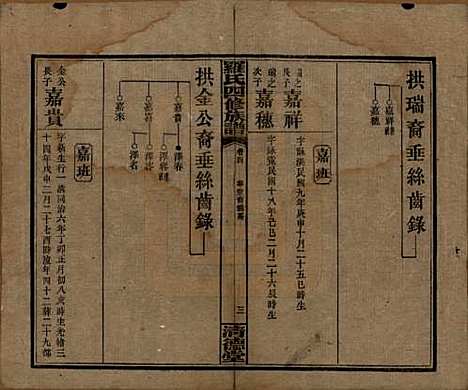 拱瑞裔垂絲齒錄
嘉祥
嘉穗
嘉班
瑞之長子嘉祥
字詠漢民國九年庚申十月二十五巳時生
瑞之次子嘉穗
字詠民國十八年己巳二月二十六辰時生
羅氏四修族譜
卷四
三
清德堂
拱金公裔垂絲齒錄
嘉貴
澤春
嘉山
澤容
嘉來
澤名
嘉班
金公長子嘉貴
字新生行一清同治六年丁卯正月初八亥時生光緒三
十四年戊申二月二十七酉時歿年四十二葬二十九都